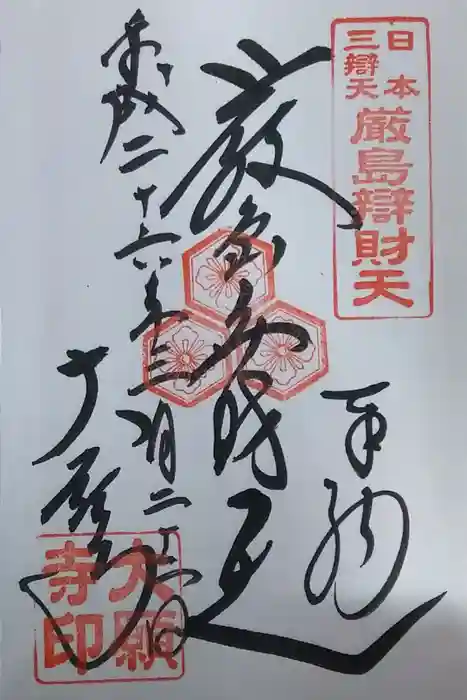 日本
三辯天
厳島辯財天
奉拝
厳島弁財天
平成二十六年三月二十二日
大願寺
大願
寺印